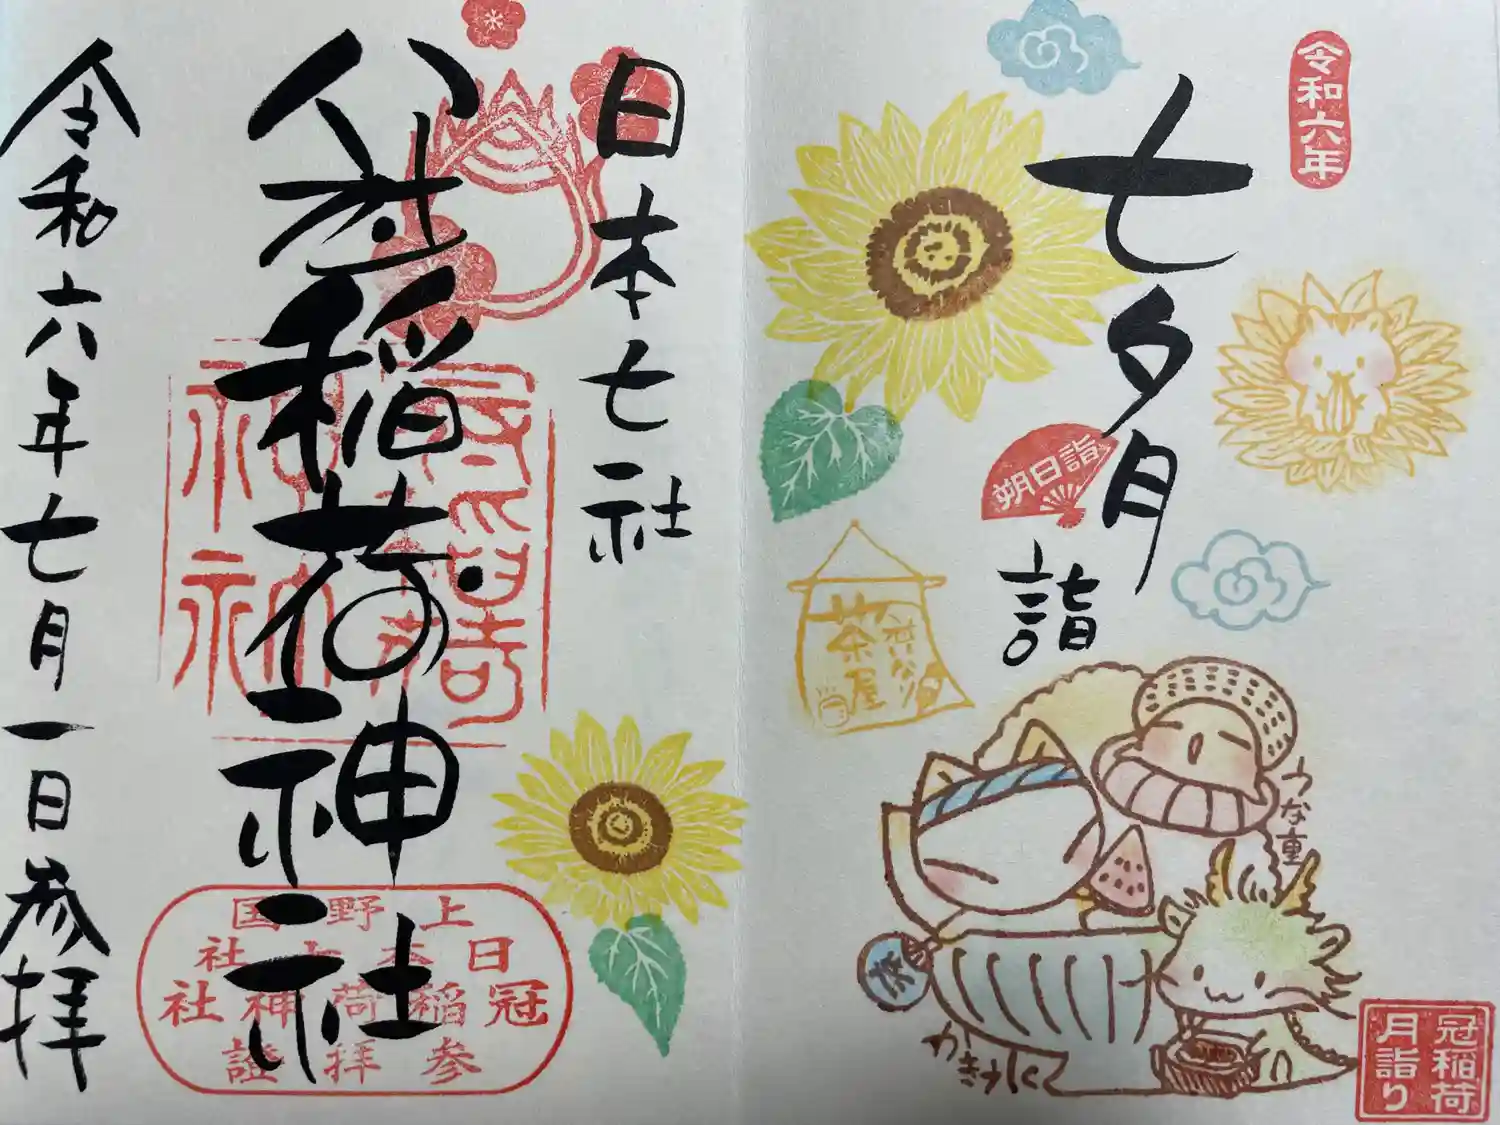 令和六年
七夕月
詣
朔日詣
茶屋
うな重
かき氷
涼
冠稲荷
月詣り
日本七社
冠稲荷神社
上野国
日本七社
冠稲荷神社
参拝證
令和六年七月一日参拝